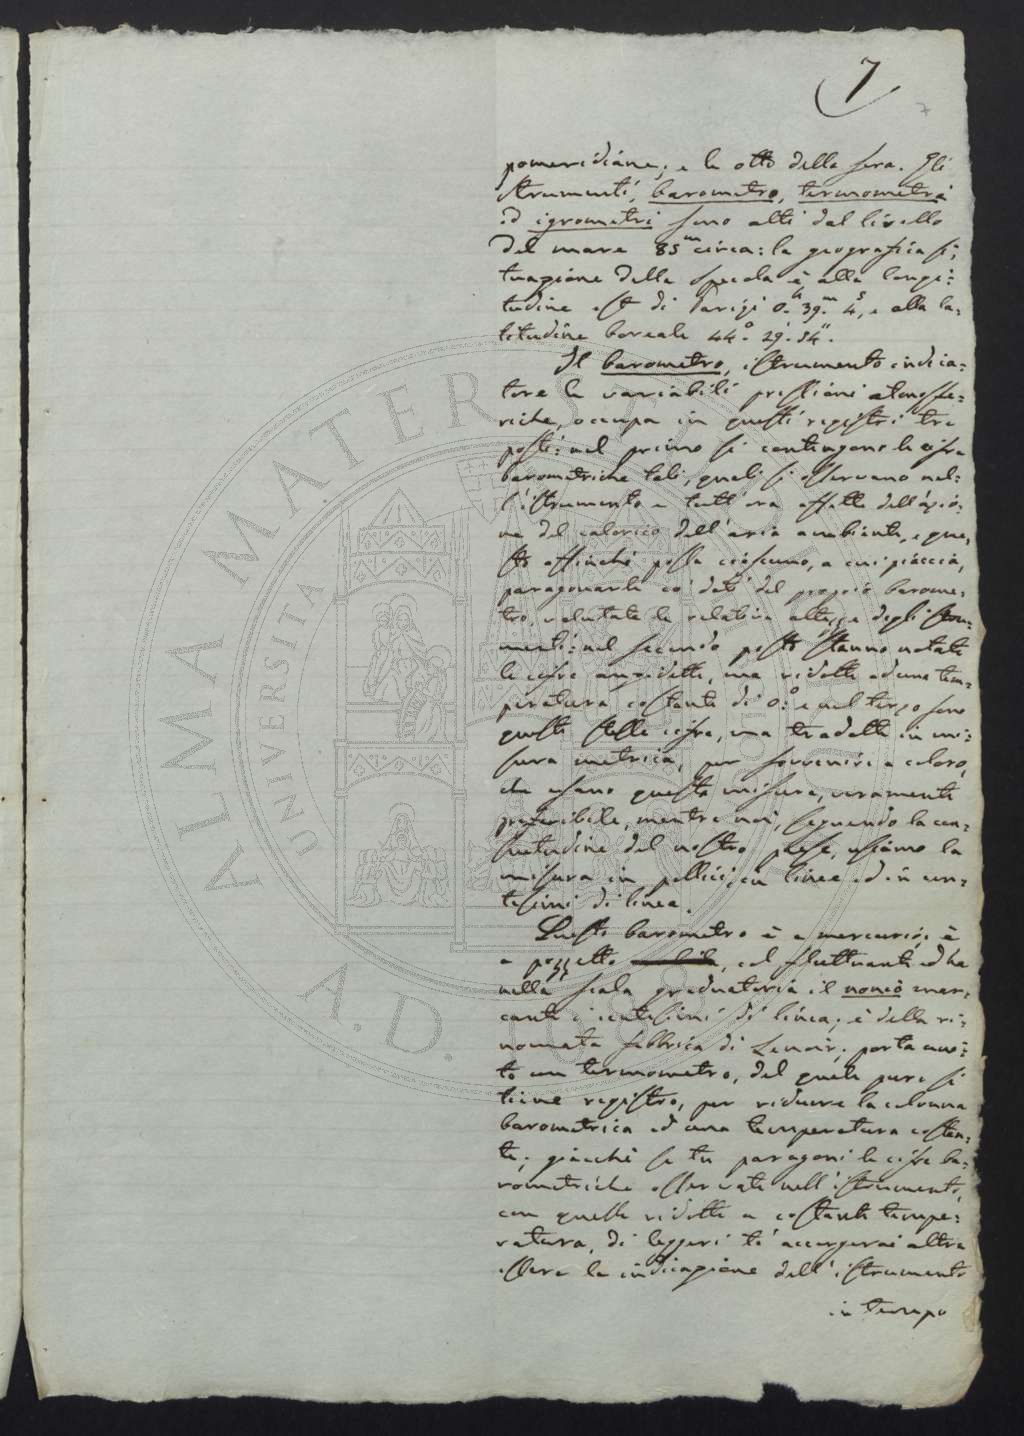 7
7
pomeridiane; e le otto della sera. Gli
strumenti, barometro, termometri
ed igrometri sono alti dal livello
del mare 85m circa: la geografica si=
tuazione della specola è alla longi=
tudine est di Parigi 0.h 39.m 4.s, e alla la=
titudine boreale 44.° 29.' 54."
Il barometro, istrumento indica=
tore le variabili pressioni atmosfe=
riche, occupa in questi registri tre
posti: nel primo si contengono le cifre
barometriche tali, quali si osservano nel=
l'istrumento e tutt'ora affette dell'azio=
ne del calorico dell'aria ambiente, e que=
sto affinchè possa ciascuno, a cui piaccia,
paragonarle co' dati del proprio barome=
tro, valutate le relative altezze degli stru=
menti: nel secondo posto stanno notate
le cifre anzidette, ma ridotte ad una tem=
peratura costante di 0.° e nel terzo sono
queste stesse cifre, ma tradotte in mi=
sura metrica, per sovvenire a coloro,
che usano questa misura, veramente
preferibile, mentre noi, seguendo la con=
suetudine del nostro paese, usiamo la
misura in pollici, in linee ed in cen=
tesimi di linea.
Questo barometro è a mercurio; è
a pozzetto, col fluttuante ed ha
nella scala graduatoria il nonio mar=
cante i centesimi di linea; è della ri=
nomata fabbrica di Lenoir; porta uni=
to un termometro, del quale pure si
tiene registro, per ridurre la colonna
barometrica ad una temperatura costan=
te; giacchè se tu paragoni le cifre ba=
rometriche osservate nell'istrumento,
con quelle ridotte a costante tempe=
ratura, di leggeri ti accorgerai altra
essere la indicazione dell'istrumento
in tempo
ALMA MATER STUDIORUM
UNIVERSITÀ DI BOLOGNA
A.D. 1088